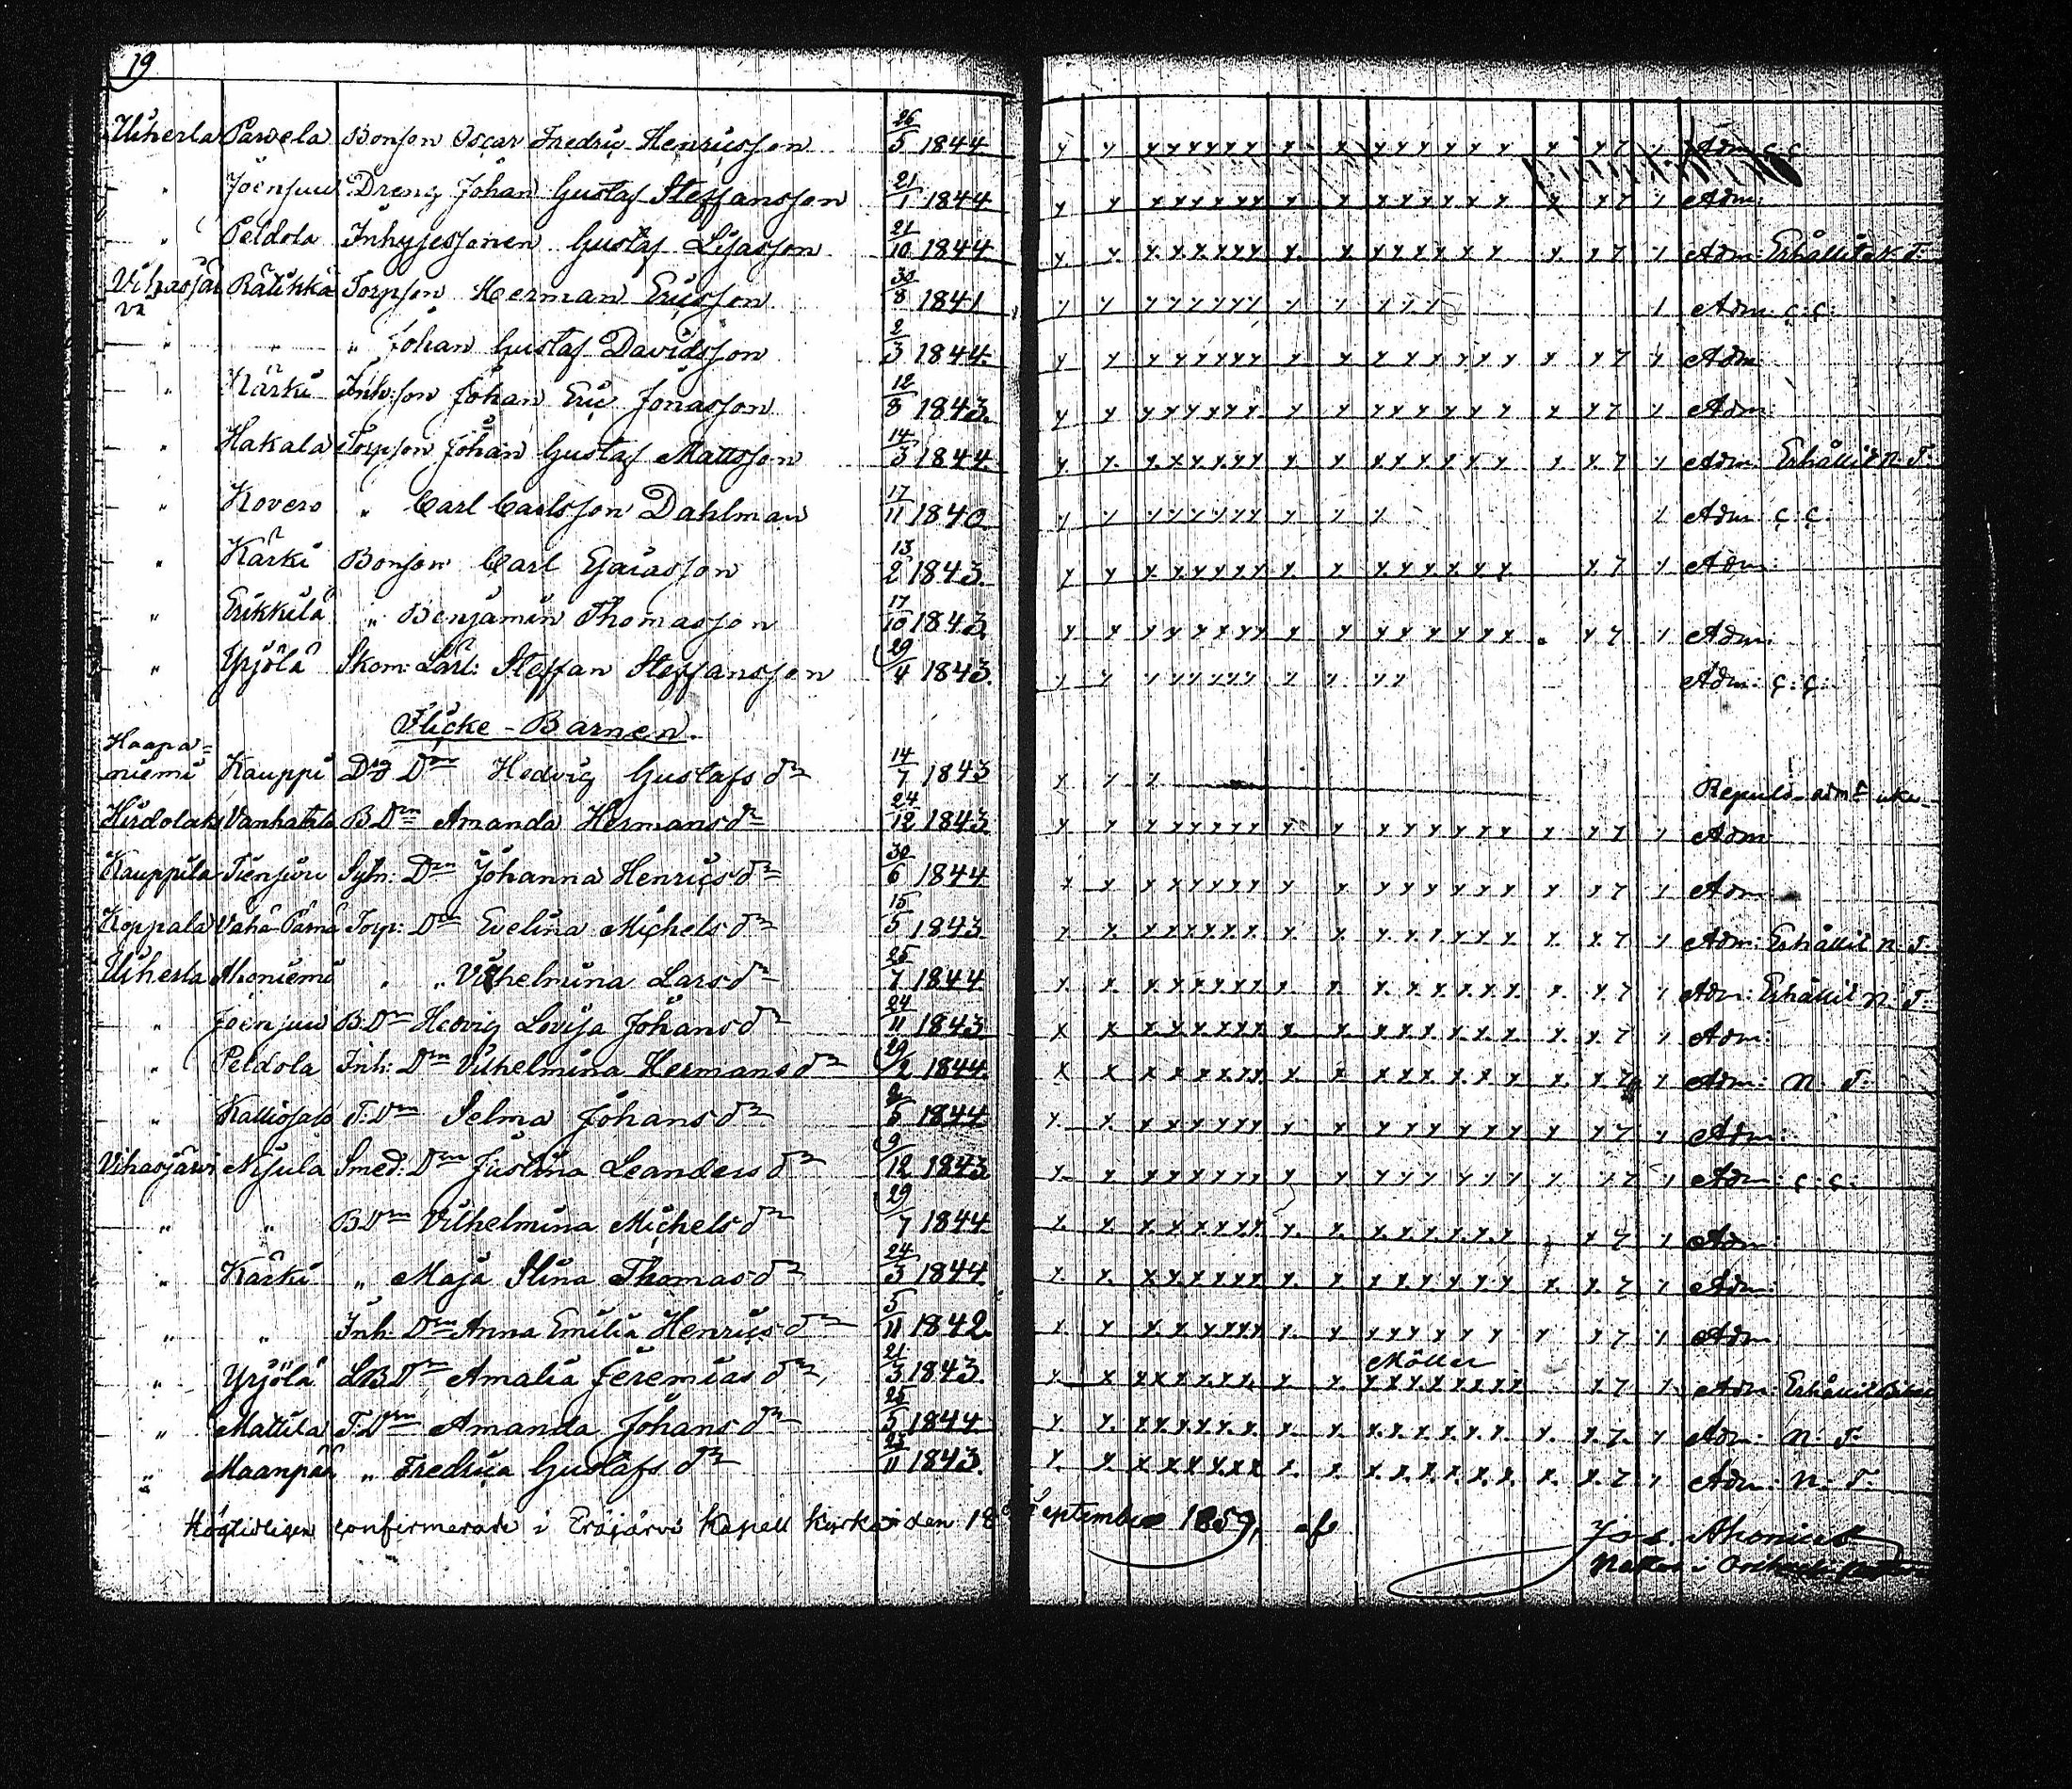 19
Uiherla Parvela Bonson Oscar Fredric Henricsson 26/5 1844 y y yyyyyy y y yyyyyy y y7 1 Adm: c:c:
" Joenjuu Dreng Johan Gustaf Steffansson 21/1 1844 y y yyyyyy y y yyyyyy y y7 1 Adm:
" Peldola Gustaf 21/10 1844 y y yyyyyy y y yyyyyy y y7 1 Adm: Erhållit N. T.
Vihasjärvi Rälikkä Torpson Herman Ericsson 30/8 1841 y y yyyyyy y y yyy 1 Adm: c:c:
" " " Johan Gustaf Davidsson 2/3 1844 y y yyyyyy y y yyyyyy y y7 1 Adm
" Kärki Inh:son Johan Eric Jonasson 12/8 1843. y y yyyyyy y y yyyyyy y y7 1 Adm:
" Hakala Torpson Johan Gustaf Mattsson 14/3 1844 y y yyyyyy y y yyyyyy y y7 1 Adm: Erhållit N. T:
" Kovero " Carl Carlsson Dahlman 17/11 1840 y y yyyyyy y y y 1 Adm: c:c:
" Kärki Bonson Carl Esaiasson 13/2 1843. y y yyyyyy y y yyyyyy y7 1 Adm:
" Erikkilä " Benjamin Thomasson 17/10 1843 y y yyyyyy y y yyyyyy y7 1 Adm:
" Yrjölä Skom: Lärl: Steffan Steffansson 29/4 1843. y y yyyyyy y y yy Adm: c:c:
Flicke-Barnen.
Haapaniemi Kauppi Drn Hedvig Gustafs dr 14/7 1843 y y y
Hirdolaks Vanhatalo B Drn Amanda Hermans dr 24/12 1843 y y yyyyyy y y yyyyyy y y7 1 Adm
Kauppila Tienjuu Sytn: Drn Johanna Henrics dr 30/6 1844 y y yyyyyy y y yyyyyy y y7 1 Adm
Koppala Vähä-Pärnä Torp: Drn Evelina Michels dr 15/5 1843 y y yyyyyy y y yyyyyy y y7 1 Adm: Erhållit N. T.
Uiherla Ahoniemi " " Vilhelmina Lars dr 25/7 1844 y y yyyyyy y y yyyyyy y y7 1 Adm: Erhållit N. T.
" Joenjuu B: Drn Hedvig Lovisa Johans dr 24/11 1843 x x yyyyyy y y yyyyyy y y7 1 Adm:
" Peldola Inh: Drn Vilhelmina Hermans dr 29/2 1844. x x yyyyyy y y yyyyyy y y7 1 Adm: N. T:
" Kalliosalo T: Drn Selma Johans dr 2/5 1844 y y yyyyyy y y yyyyyy y y7 1 Adm:
Vihasjärvi Nisula Smed: Drn Justina Leanders dr 9/12 1843 y y yyyyyy y y yyyyyy y y7 1 Adm: c:c:
" " B Drn Vilhelmina Michels dr 29/7 1844 y y yyyyyy y y yyyyyy y7 1 Adm:
" Kärki " Maja Stina Thomas dr 24/3 1844 y y yyyyyy y y yyyyyy y y7 1 Adm:
" " Inh: Drn Anna Emilia Henrics dr 5/11 1842. y y yyyyyy y y yyyyyy y y7 1 Adm
Möller
" Yrjölä Drn Amalia Jeremias dr 21/3 1843. y x yyyyyy y y yyyyyyyy y7 1 Adm: Erhållit
" Mattila T Drn Amanda Johans dr 25/5 1844 y y yyyyyy y y yyyyyy y y7 1 Adm: N. T.
" Maanpää " Fredrica Gustafs dr 23/11 1843. y y yyyyyy y y yyyyyy y y7 1 Adm: N: T:
Högtidligen confirmerade i Eräjärvi Kapell kyrka den 18 September 1859, af